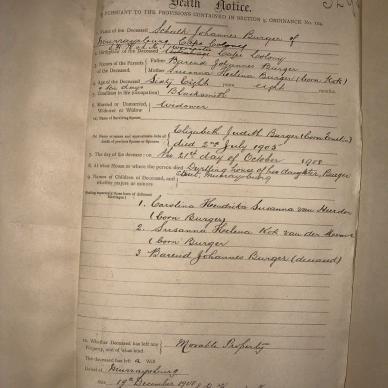 Death Notice.
PURSUANT TO THE PROVISIONS CONTAINED IN SECTION 9, ORDINANCE No. 104.
1. Name of the Deceased Schalk Johannes Burger of
Murraysburg Cape Colony
2. Birthplace of the Deceased Cape Colony
3. Names of the Parents of the Deceased Father Barend Johannes Burger
Mother Susanna Helena Burger (born Kok)
4. Age of the Deceased Sixty Eight years eight months
days
5. Condition in life (occupation) Blacksmith
6. Married or Unmarried, Widower or Widow Widower
(a) Name of Surviving Spouse
(b) Name or names and approximate date of death of previous Spouse or Spouses Elizabeth Judith Burger (born
died 2nd July 1905
7. The day of the decease: on the 21st day of October 1908
8. At what House or where the person died Dwelling house of his daughter, Burger
Street, Murraysburg
9. Names of Children of Deceased, and whether majors or minors
1. Carolina Hendrika Susanna van Heerden
(born Burger)
2. Susanna Helena Kok van der Merwe
(born Burger
3 Barend Johannes Burger (deceased)
10. Whether Deceased has left any Property, and of what kind Movable Property
The deceased has left a Will
Dated at Murraysburg
this 19th December 1908